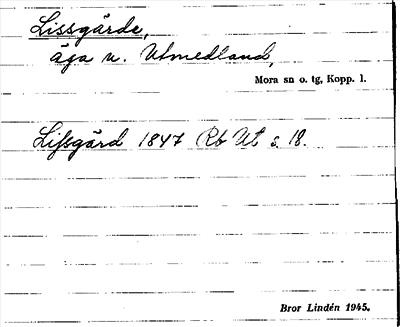 Lissgärde,
äga n. Utmedland,
Mora sn o. tg, Kopp. l.
Lissgärd 1847 Rb Ut s. 18.
Bror Lindén 1945.